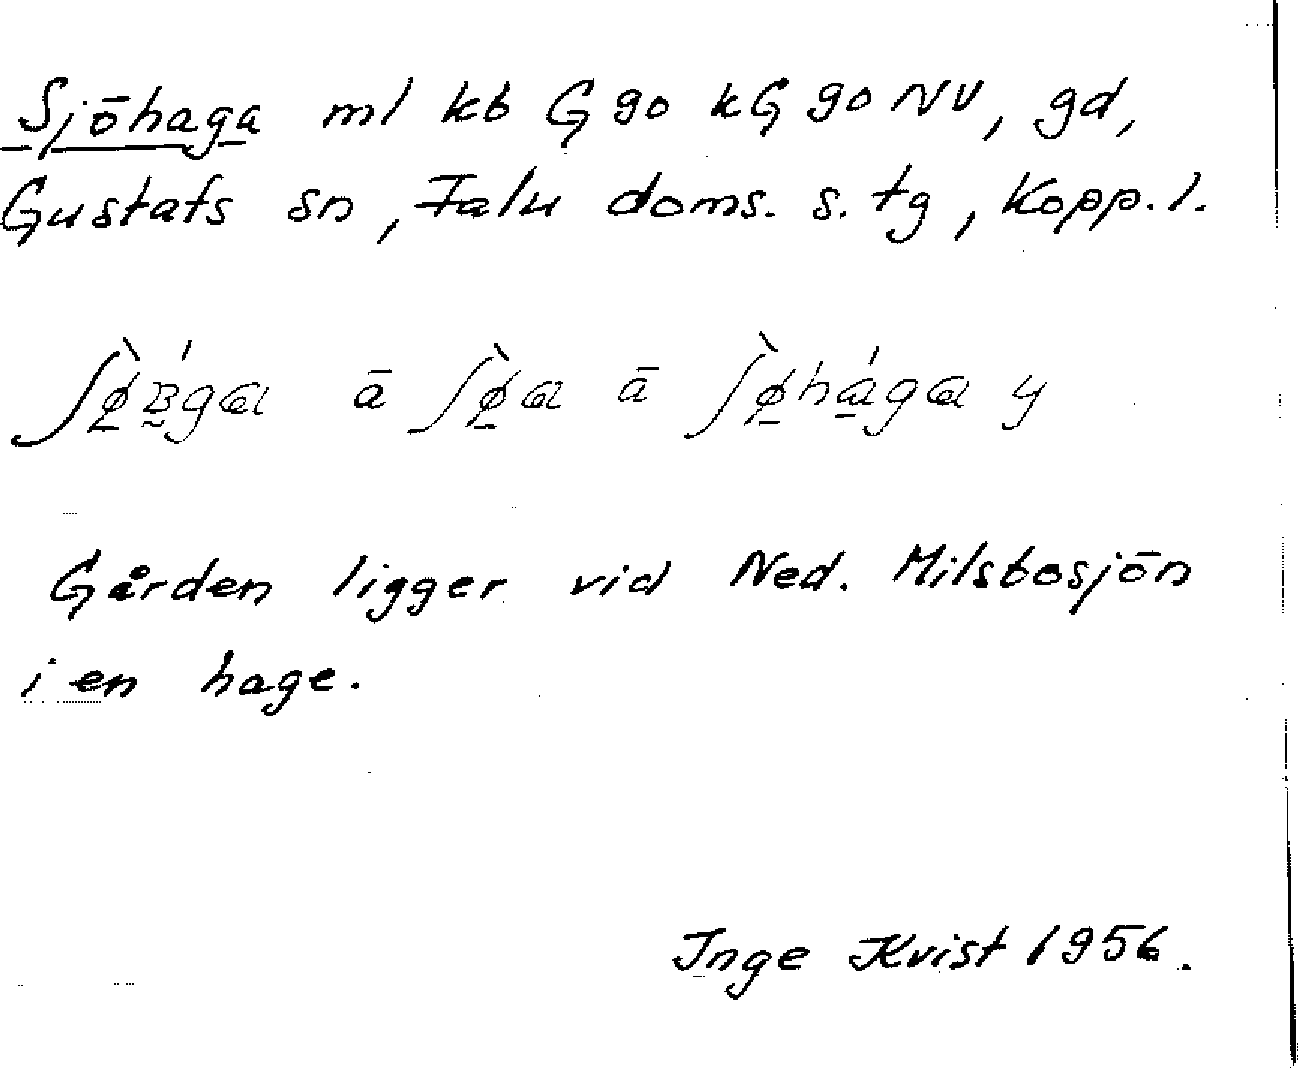 Sjöhaga ml kb G 90 kG 90 NV, gd,
Gustafs sn, Falu doms. s. tg, Kopp. l.
ā ā y
Gården ligger vid Ned. Milsbosjön
i en hage.
Inge Kvist 1956.